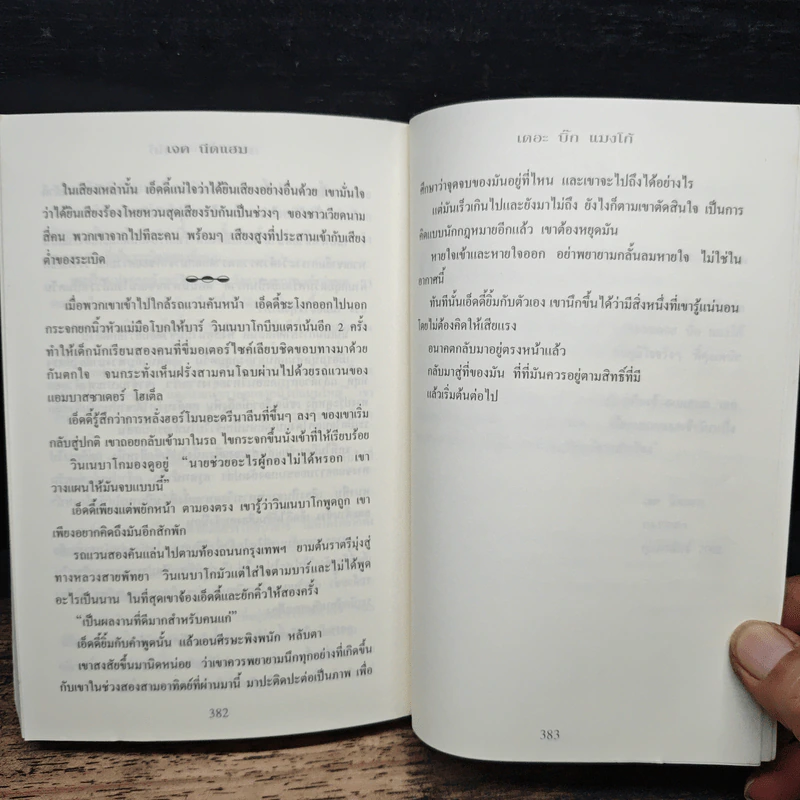 เจด นีดแฮม
ในเสียงเหล่านั้น เอ็ดดี้แน่ใจว่าได้ยินเสียงอย่างอื่นด้วย เขามั่นใจ
ว่าได้ยินเสียงร้องโหยหวนสุดเสียงรับกันเป็นช่วงๆ ของชาวเวียดนาม
สี่คน พวกเขาจากไปทีละคน พร้อมๆ เสียงสูงที่ประสานเข้ากับเสียง
ต่ำของระเบิด
เมื่อพวกเขาเข้าไปใกล้รถแวนคันหน้า เอ็ดดี้ชะโงกออกไปนอก
กระจกยกนิ้วหัวแม่มือโบกให้บาร์ วินเนบาโกบีบแตรเน้นอีก 2 ครั้ง
ทำให้เด็กนักเรียนสองคนที่ขี่มอเตอร์ไซค์เลียบชิดขอบทางมาด้วย
กันตกใจ จนกระทั่งเห็นฝรั่งสามคนโฉบผ่านไปด้วยรถแวนของ
แอมบาสซาเดอร์ โฮเต็ล
เอ็ดดี้รู้สึกว่าการหลั่งฮอร์โมนอะดรีนาลีนที่ขึ้นๆ ลงๆ ของเขาเริ่ม
กลับสู่ปกติ เขาถอยกลับเข้ามาในรถ ไขกระจกขึ้นนั่งเข้าที่ให้เรียบร้อย
วินเนบาโกมองดูอยู่ “นายช่วยอะไรผู้กองไม่ได้หรอก เขา
วางแผนให้มันจบแบบนี้”
เอ็ดดี้เพียงแต่พยักหน้า ตามองตรง เขารู้ว่าวินเนบาโกพูดถูก เขา
เพียงอยากคิดถึงมันอีกสักพัก
รถแวนสองคันแล่นไปตามท้องถนนกรุงเทพฯ ยามต้นราตรีมุ่งสู่
ทางหลวงสายพัทยา วินเนบาโกมัวแต่ใส่ใจตามบาร์และไม่ได้พูด
อะไรเป็นนาน ในที่สุดเขาจ้องเอ็ดดี้และยักคิ้วให้สองครั้ง
“เป็นผลงานที่ดีมากสำหรับคนแก่”
เอ็ดดี้ยิ้มกับคำพูดนั้น แล้วเอนศีรษะพิงพนัก หลับตา
เขาสงสัยขึ้นมานิดหน่อย ว่าเขาควรพยายามนึกทุกอย่างที่เกิดขึ้น
กับเขาในช่วงสองสามอาทิตย์ที่ผ่านมานี้ มาปะติดปะต่อเป็นภาพ เพื่อ
382
เดอะ บิ๊ก แมงโก้
ศึกษาว่าจุดจบของมันอยู่ที่ไหน และเขาจะไปถึงได้อย่างไร
แต่มันเร็วเกินไปและยังมาไม่ถึง ยังไงก็ตามเขาตัดสินใจ เป็นการ
คิดแบบนักกฎหมายอีกแล้ว เขาต้องหยุดมัน
หายใจเข้าและหายใจออก อย่าพยายามกลั้นลมหายใจ ไม่ใช่ใน
อากาศนี้
ทันทีนั้นเอ็ดดี้ยิ้มกับตัวเอง เขานึกขึ้นได้ว่ามีสิ่งหนึ่งที่เขารู้แน่นอน
โดยไม่ต้องคิดให้เสียแรง
อนาคตกลับมาอยู่ตรงหน้าแล้ว
กลับมาสู่ที่ของมัน ที่ที่มันควรอยู่ตามสิทธิ์ที่มี
แล้วเริ่มต้นต่อไป
383